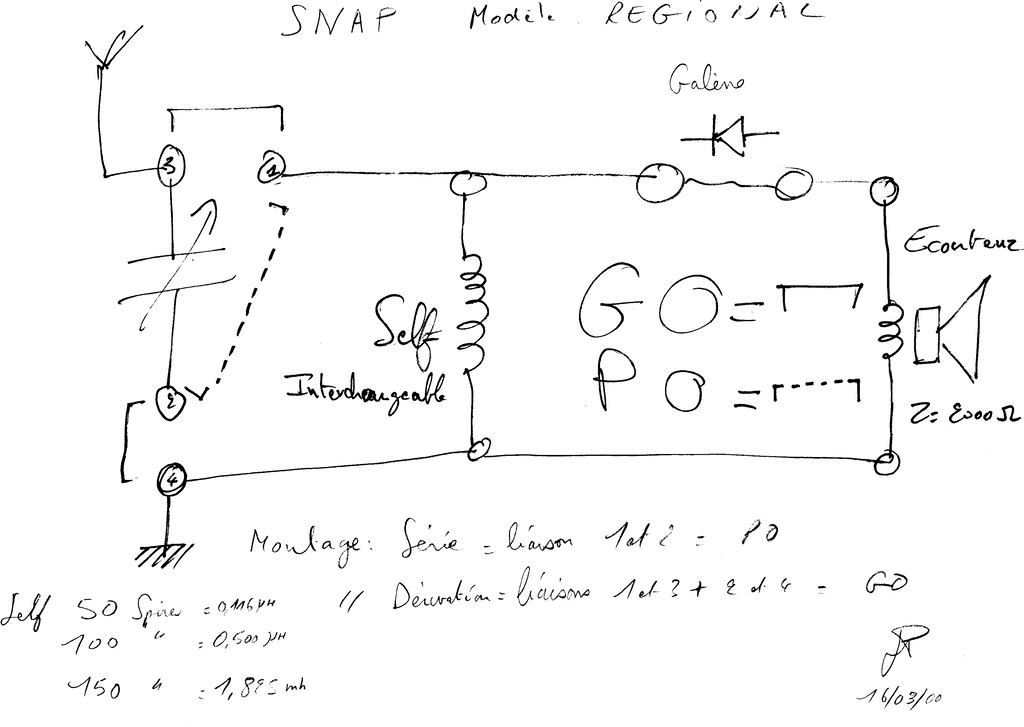 SNAP Modèle REGIONAL
Galène
3
1
Ecouteur
GO =
Self
Interchangeable
PO =
2
Z = 2000 Ω
4
Montage: Série = liaison 1 et 2 = PO
Self 50 Spires = 0,116 µH
" Dérivation = liaisons 1 et 3 + 2 et 4 = GO
100 " = 0,500 µH
150 " = 1,825 mh
16/03/00